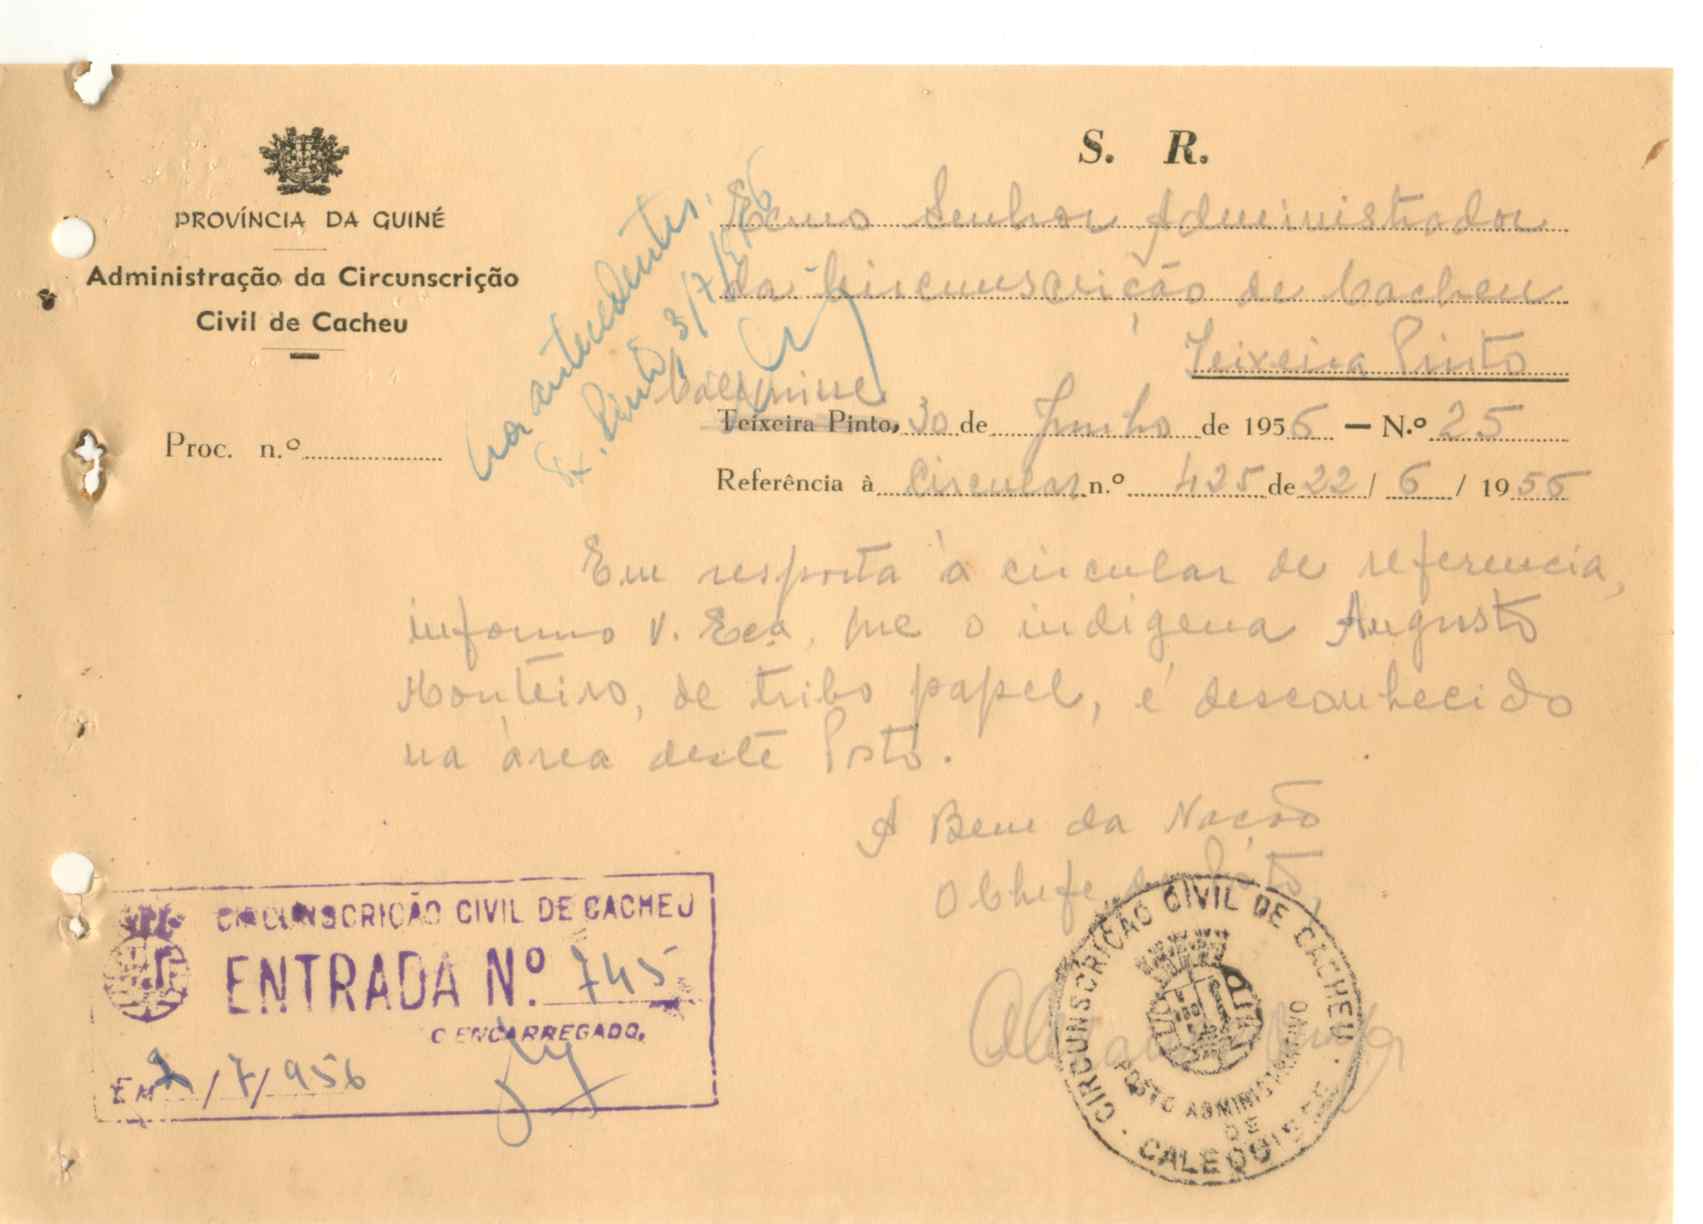 S. R.
PROVÍNCIA DA GUINÉ
Administração da Circunscrição
Civil de Cacheu
Exmo Senhor Administrador
da Circunscrição de Cacheu
Teixeira Pinto
antecedentes.
Tx. Pinto, 3/7/956
Teixeira Pinto, 30 de Junho de 1956 — N.º 25
Proc. n.º
Referência à Circular n.º 425 de 22 / 6 / 1956
Em resposta à circular de referencia,
informo V. Exa, que o indigena Augusto
Monteiro, de tribo papel, é desconhecido
na àrea deste Posto.
A Bem da Nação
O Chefe do Posto,
CIRCUNSCRIÇÃO CIVIL DE CACHEU
ENTRADA N.º 745
O ENCARREGADO,
EM /7/956
CIRCUNSCRIÇÃO CIVIL DE CACHEU
POSTO ADMINISTRATIVO
DE
CALEQUISSE